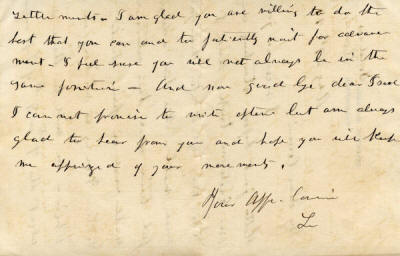 better ments - I am glad you are willing to do the
best that you can and to patiently wait for advance
ment - I feel sure you will not always be in the
same position - And now good bye dear
I can not promise to write often but am always
glad to hear from you and hope you will keep
me apprized of your movements.
Your Affe. Cousin